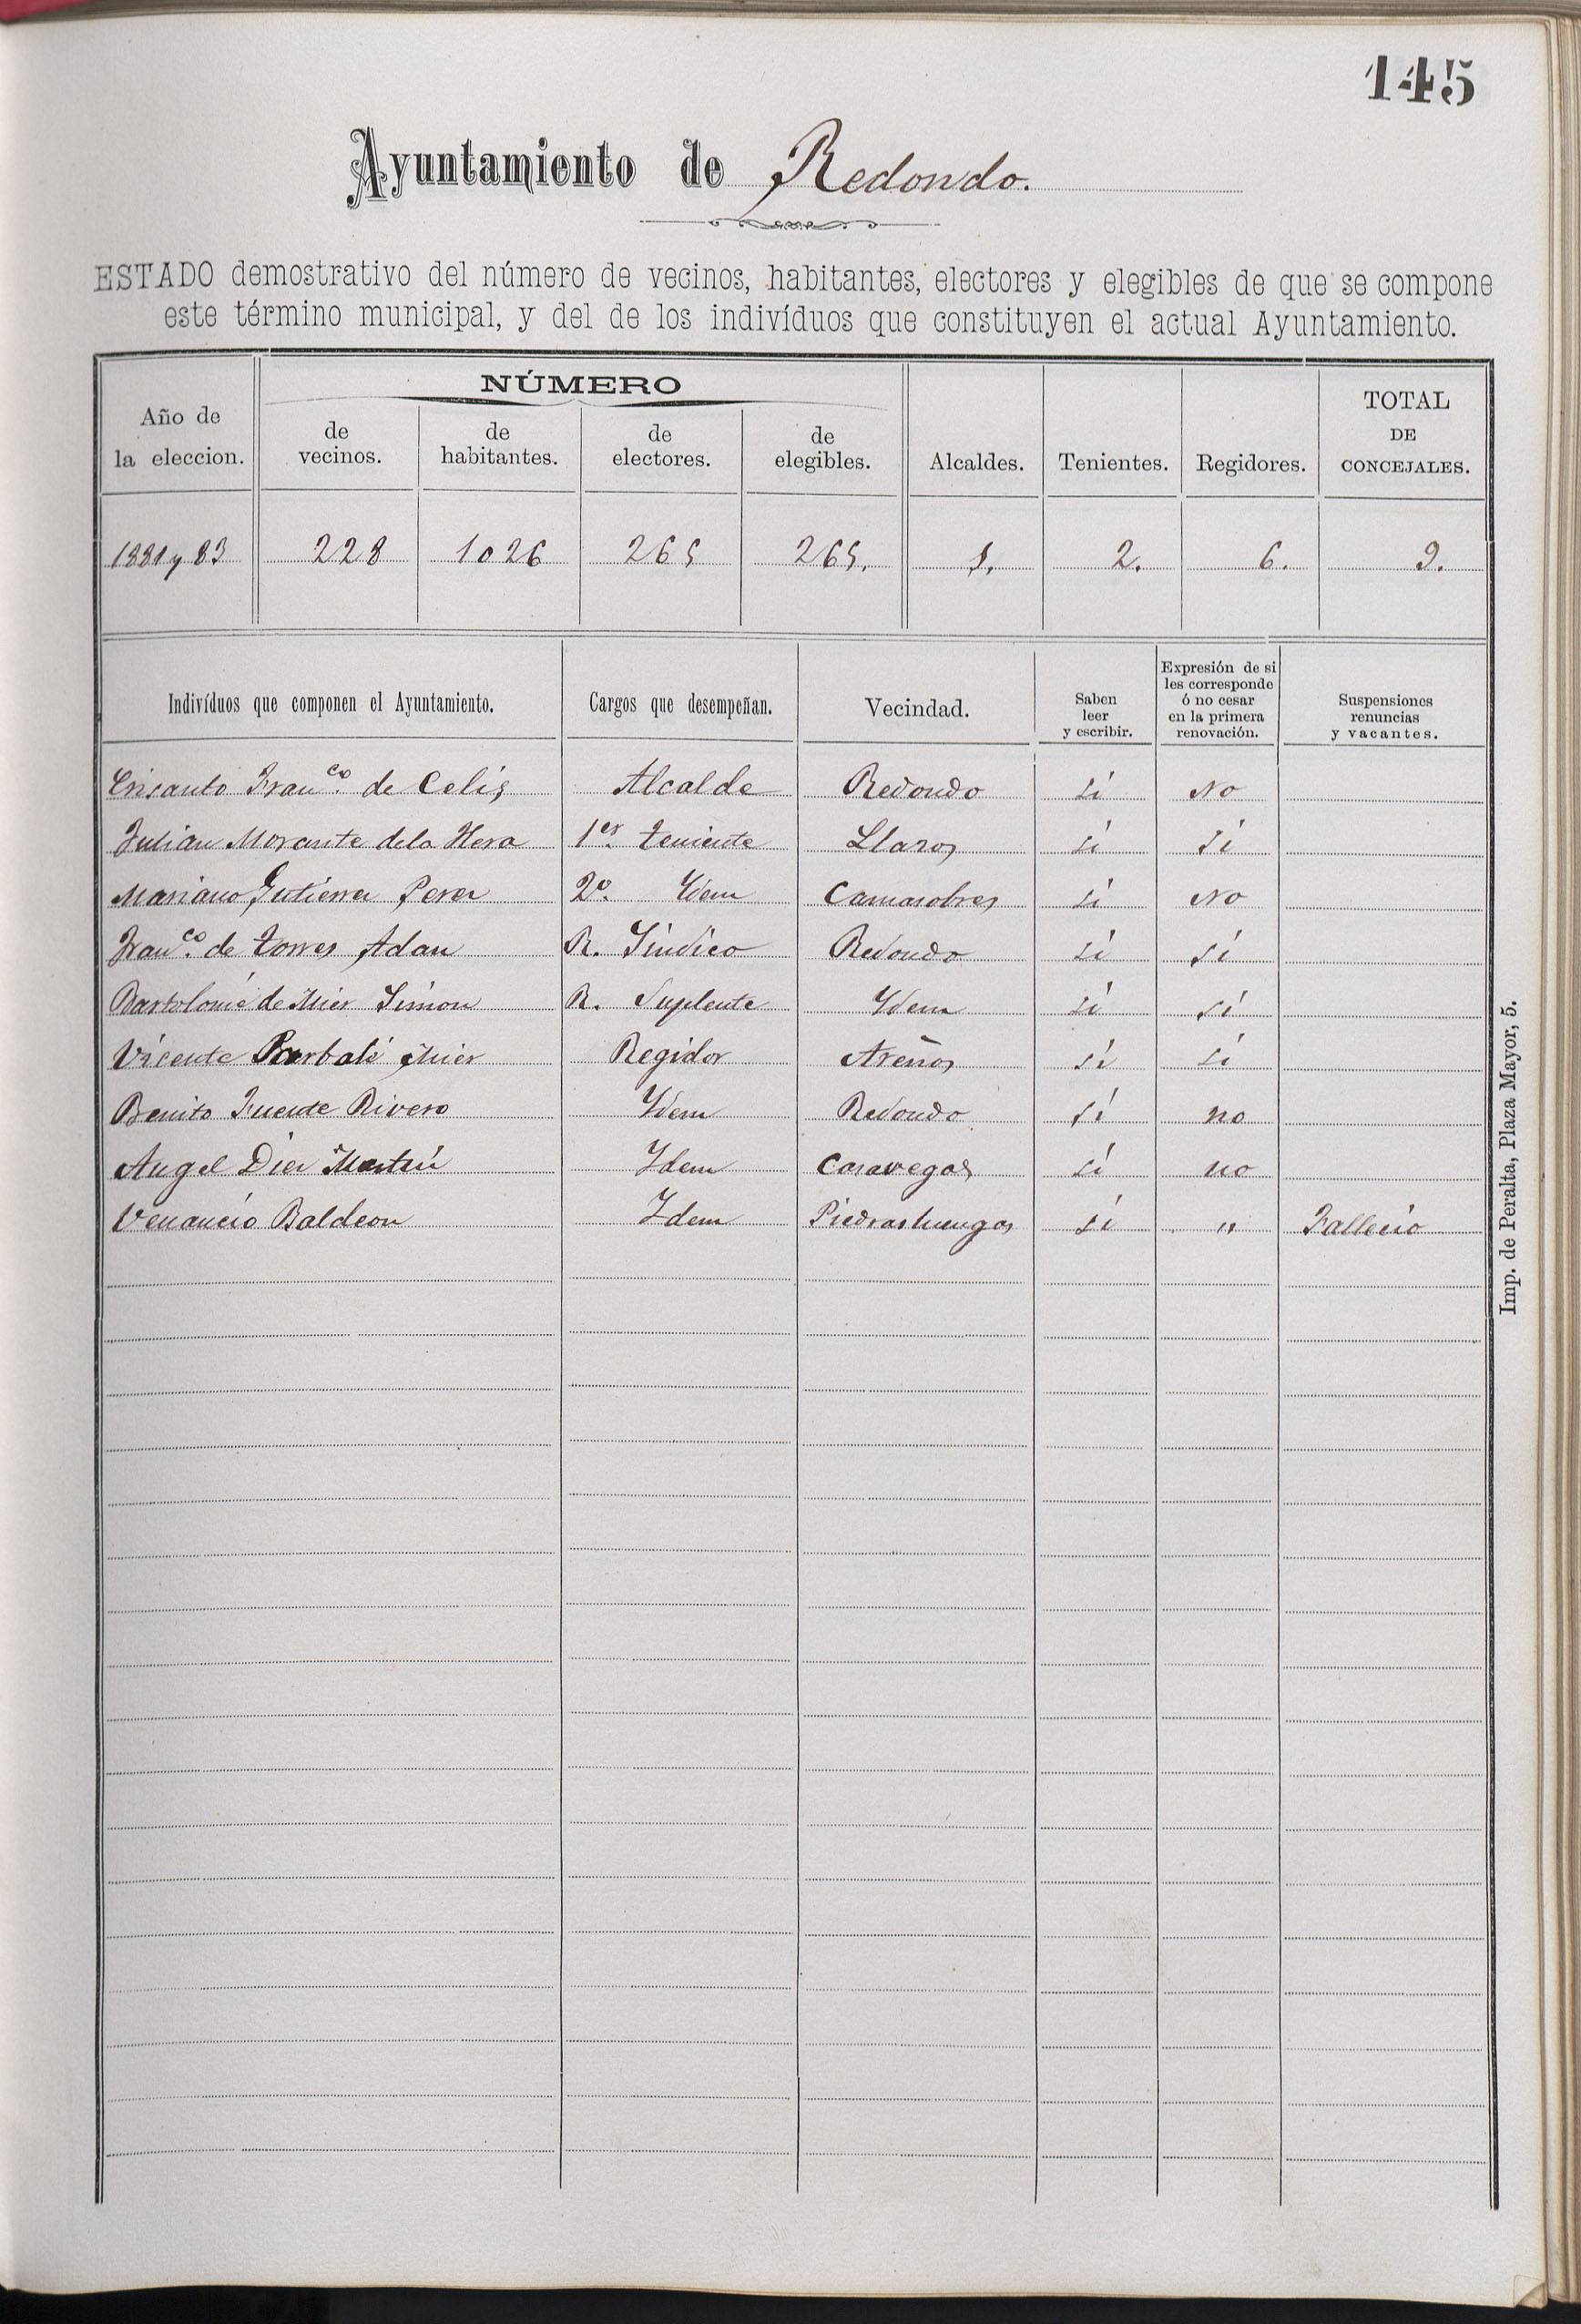 145
Ayuntamiento de Redondo.
ESTADO demostrativo del número de vecinos, habitantes, electores y elegibles de que se compone
este término municipal, y del de los indivíduos que constituyen el actual Ayuntamiento.
Año de la eleccion. NÚMERO de vecinos. de habitantes. de electores. de elegibles. Alcaldes. Tenientes. Regidores. TOTAL DE CONCEJALES.
1881 y 83 228 1026 265 265. 1. 2. 6. 9.
Indivíduos que componen el Ayuntamiento. Cargos que desempeñan. Vecindad. Saben leer y escribir. Expresión de si les corresponde ó no cesar en la primera renovación. Suspensiones renuncias y vacantes.
Crisanto Fran.co de Celis Alcalde Redondo sí No
Julian Morante dela Hera 1er. teniente Llazos sí sí
Mariano Gutierrez Perez 2º. Ydem Camasobres sí No
Fran.co de torres Adan R. Síndico Redondo sí sí
Bartolomé de Mier Simon R. Suplente Ydem sí sí
Vicente Mier Regidor Areños sí sí
Benito Fuente Rivero Ydem Redondo sí no
Angel Diez Martin Ydem Casavegas sí no
Venancio Baldeon Ydem Piedrasluengas sí " Fallecio
Imp. de Peralta, Plaza Mayor, 5.